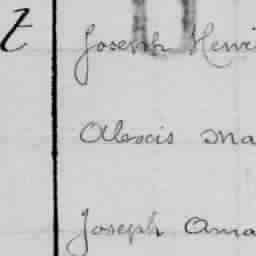 t Joseph Henri
Alexis Ma
Joseph Ama